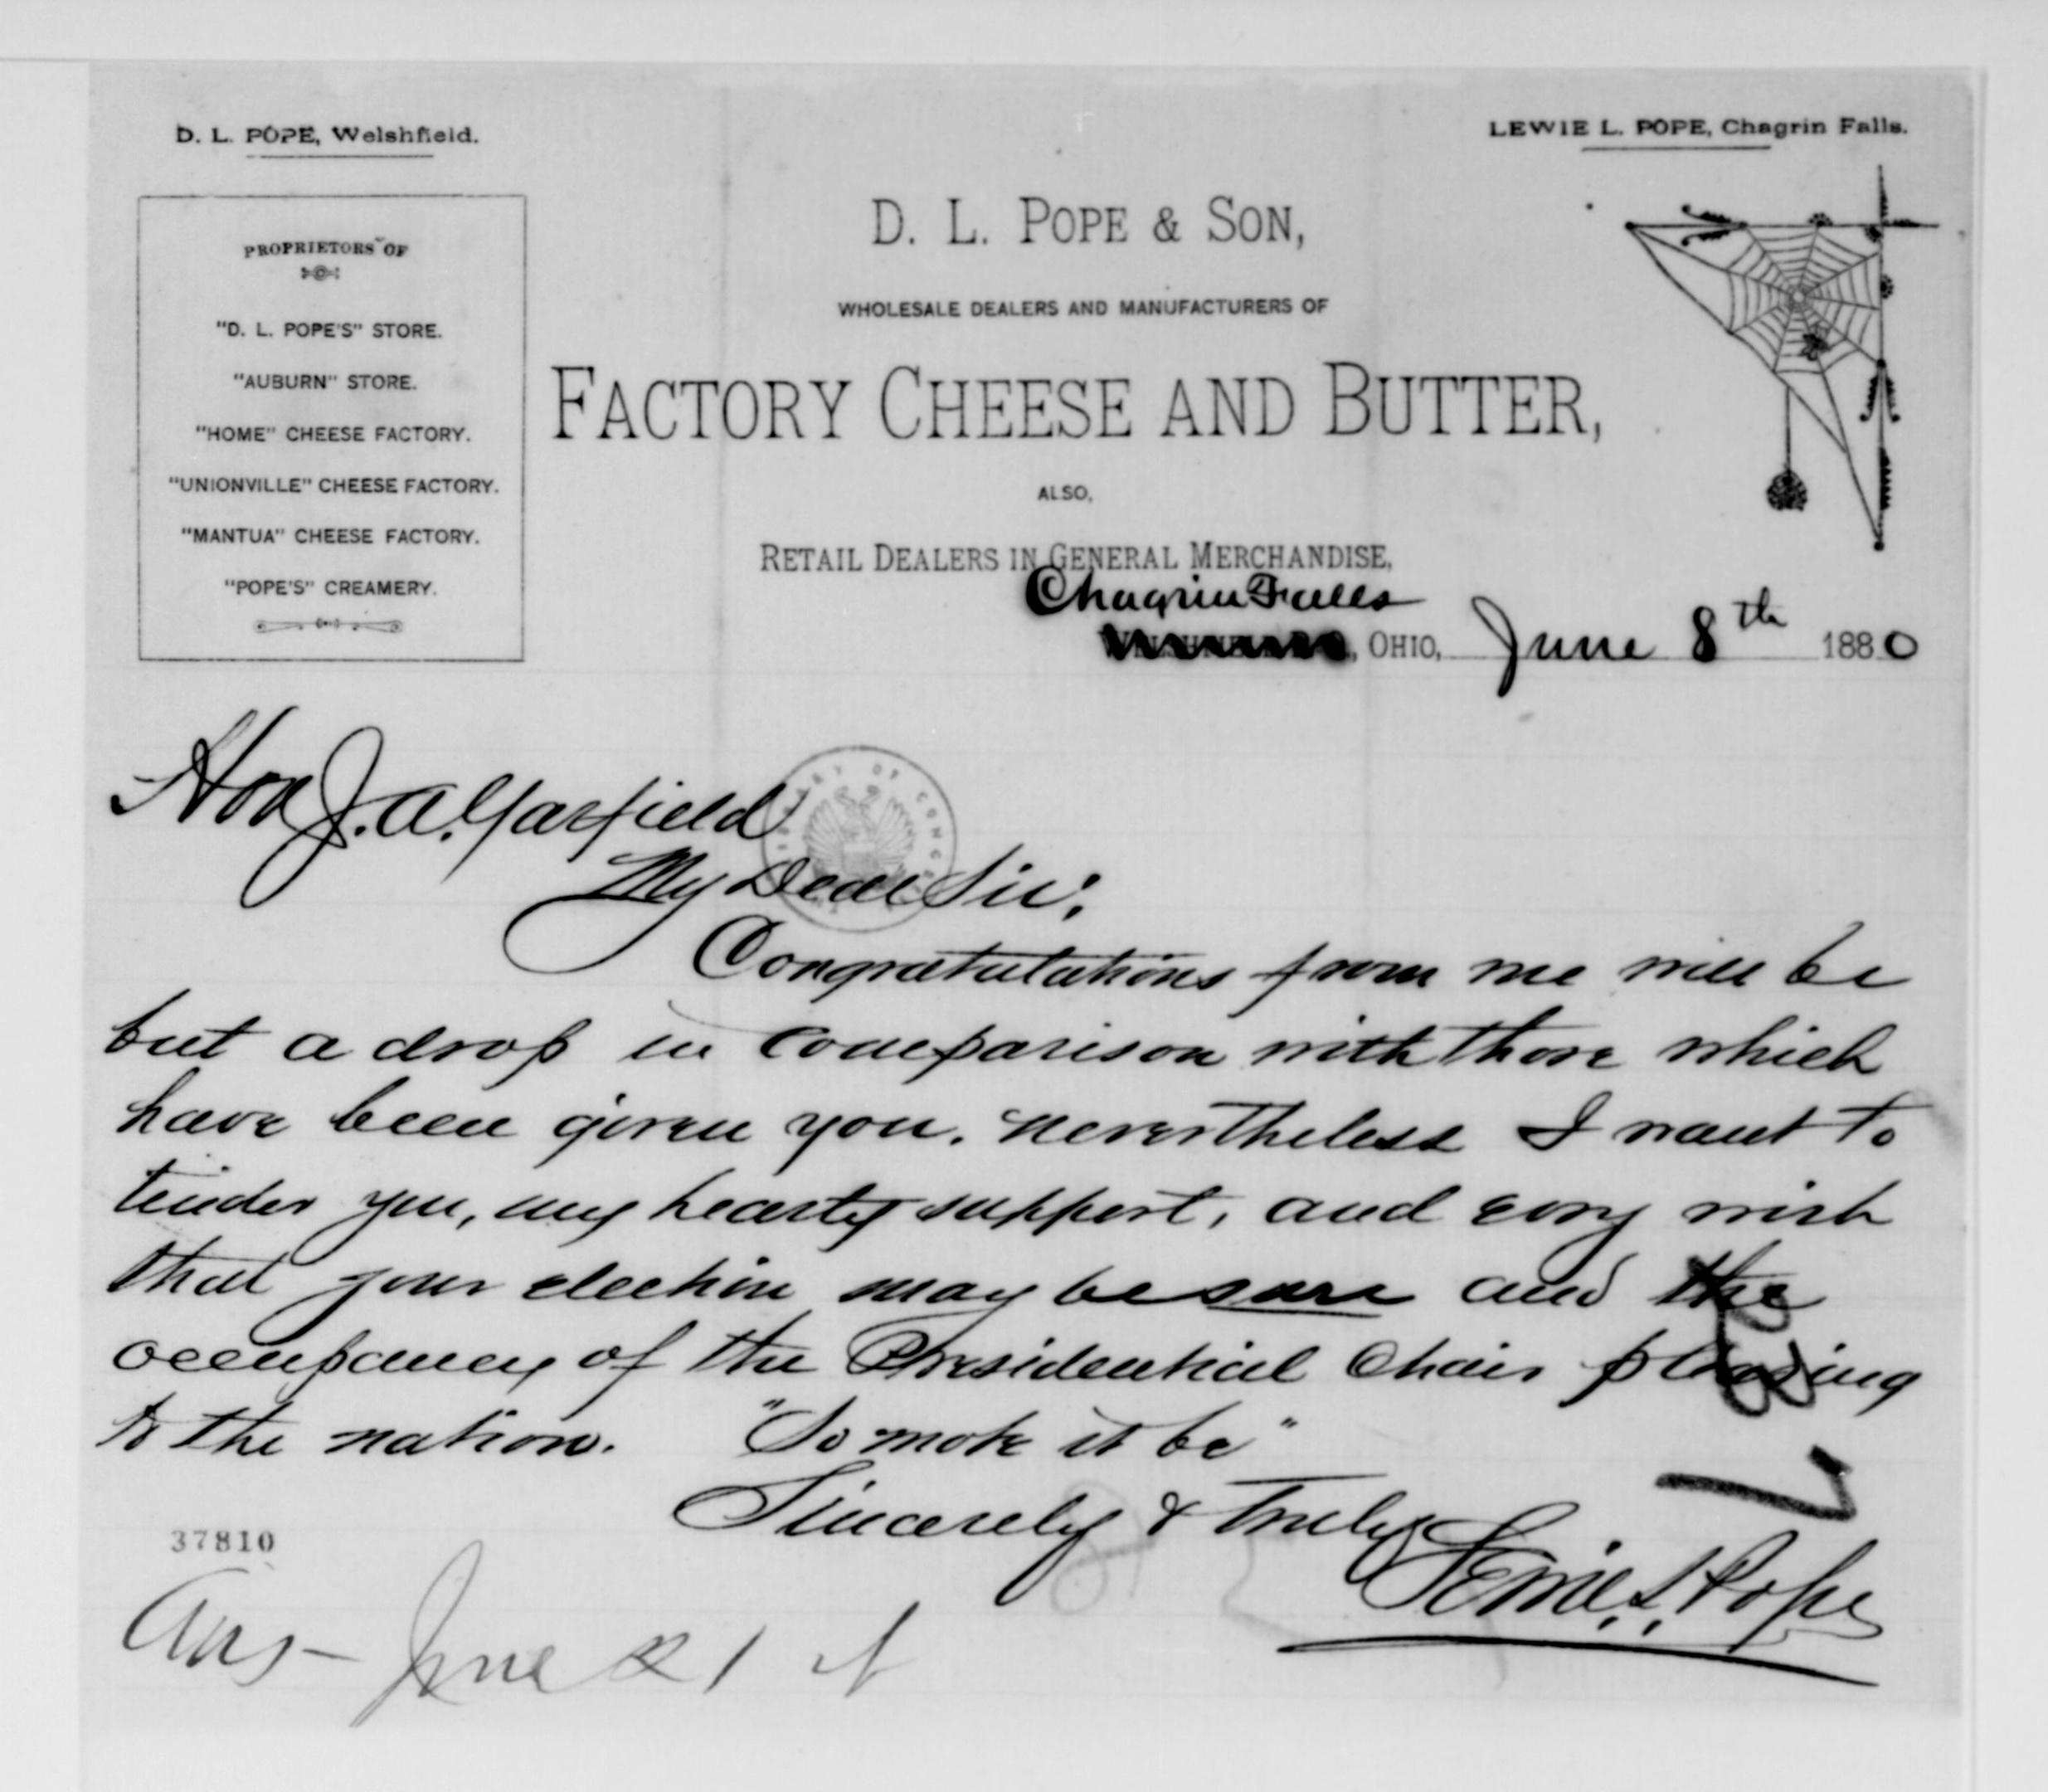 D. L. POPE, Welshfield.
LEWIE L. POPE, Chagrin Falls.
PROPRIETORS OF
"D. L. POPE'S" STORE.
"AUBURN" STORE.
"HOME" CHEESE FACTORY.
"UNIONVILLE" CHEESE FACTORY.
"MANTUA" CHEESE FACTORY.
"POPE'S" CREAMERY.
D. L. POPE & SON,
WHOLESALE DEALERS AND MANUFACTURERS OF
FACTORY CHEESE AND BUTTER,
ALSO,
RETAIL DEALERS IN GENERAL MERCHANDISE,
Chagrin Falls
, OHIO, June 8th 1880
Hon J. A. Garfield
LIBRARY OF CONGRESS
My Dear Sir;
Congratulations from me will be
but a drop in comparison with those which
have been given you. nevertheless I want to
tender you, my hearty support, and evry wish
that your election may be sure and the
occupancy of the Presidential Chair pleasing
to the nation. "So mote it be"
Sincerely & Truly
Lewie. L. Pope
37810
Ans - June 21